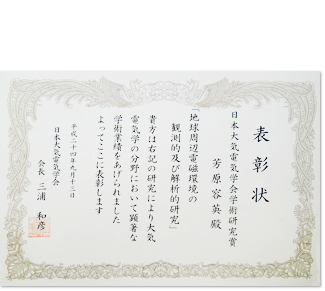 表彰状
日本大気電気学会学術研究賞
芳原容英殿
「地球周辺電磁環境の
観測的及び解析的研究」
貴方は右記の研究により大気
電気学の分野において顕著な
学術業績をあげられました
よってここに表彰します
平成二十四年九月十三日
日本大気電気学会
会長 三浦 和彦